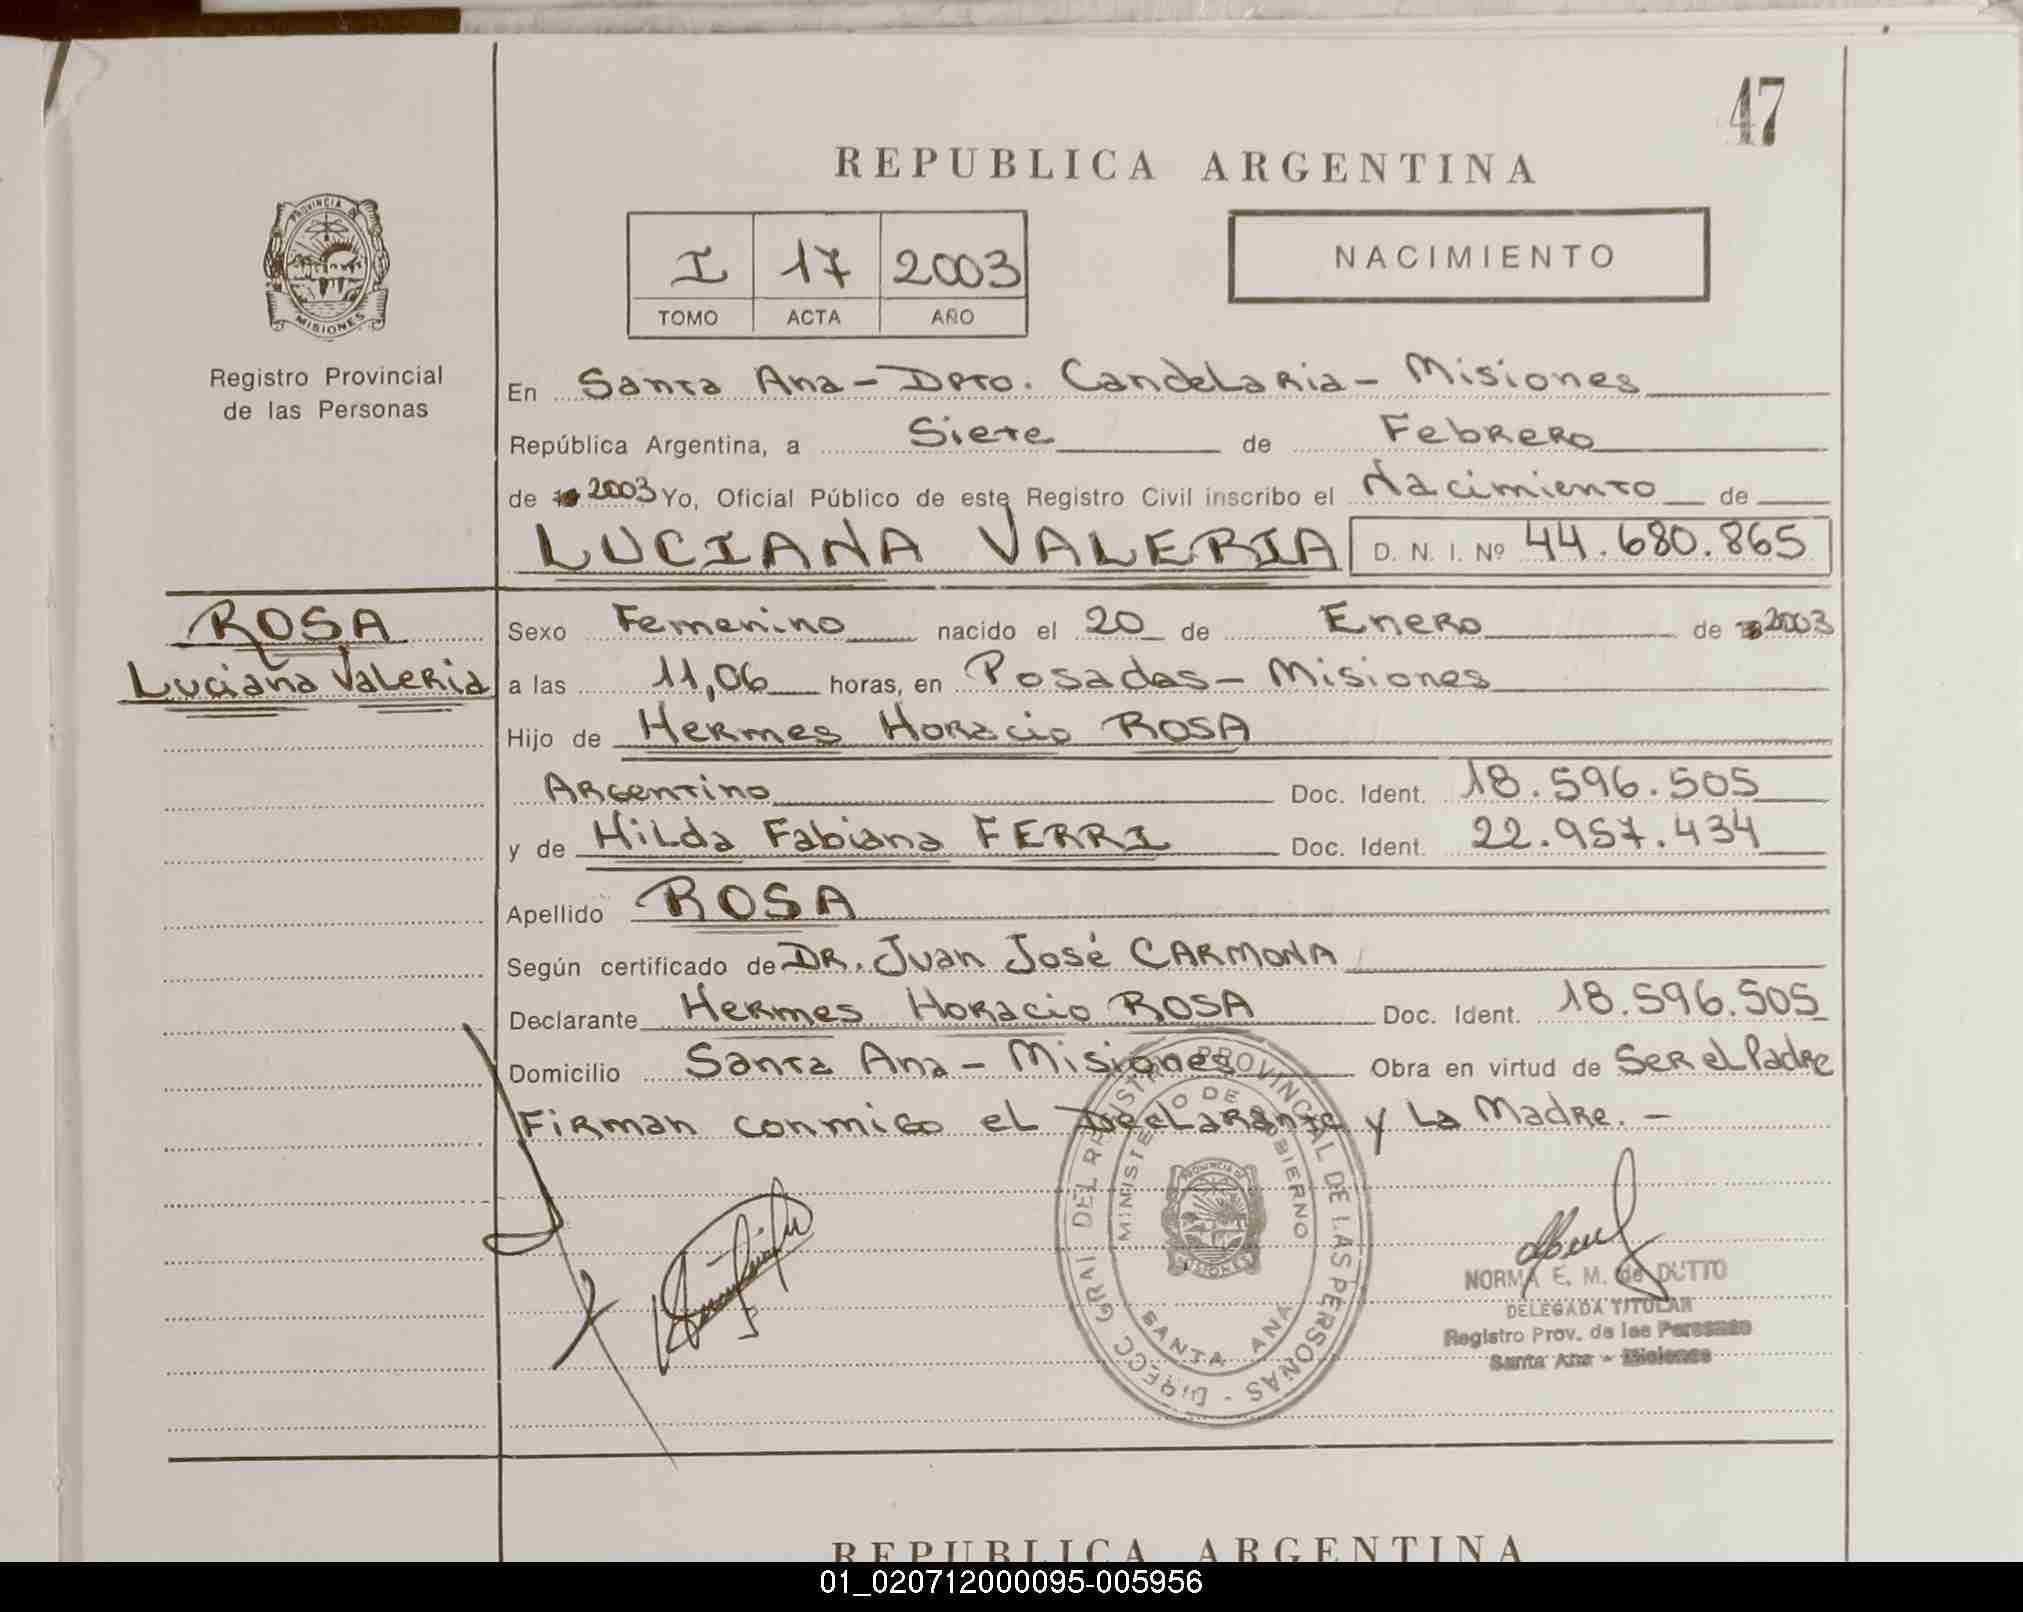 47
REPUBLICA ARGENTINA
PROVINCIA DE
MISIONES
Registro Provincial
de las Personas
I 17 2003
TOMO ACTA AÑO
NACIMIENTO
En Santa Ana - Dpto. Candelaria - Misiones
República Argentina, a Siete de Febrero
de 2003 Yo, Oficial Público de este Registro Civil inscribo el Nacimiento de
LUCIANA VALERIA D. N. I. Nº 44.680.865
ROSA
Luciana Valeria
Sexo Femenino nacido el 20 de Enero de 2003
a las 11,06 horas, en Posadas - Misiones
Hijo de Hermes Horacio ROSA
Argentino Doc. Ident. 18.596.505
y de Hilda Fabiana FERRI Doc. Ident. 22.957.434
Apellido ROSA
Según certificado de DR. Juan José CARMONA
Declarante Hermes Horacio ROSA Doc. Ident. 18.596.505
Domicilio Santa Ana - Misiones Obra en virtud de Ser el Padre
Firman conmigo el Declarante y La Madre. -
DIRECC GRAL DEL REGISTRO PROVINCIAL DE LAS PERSONAS -
MINISTERIO DE GOBIERNO
PROVINCIA DE
MISIONES
SANTA ANA
NORMA E. M. de DUTTO
DELEGADA TITULAR
Registro Prov. de las Personas
Santa Ana - Misiones
REPUBLICA ARGENTINA
01_020712000095-005956